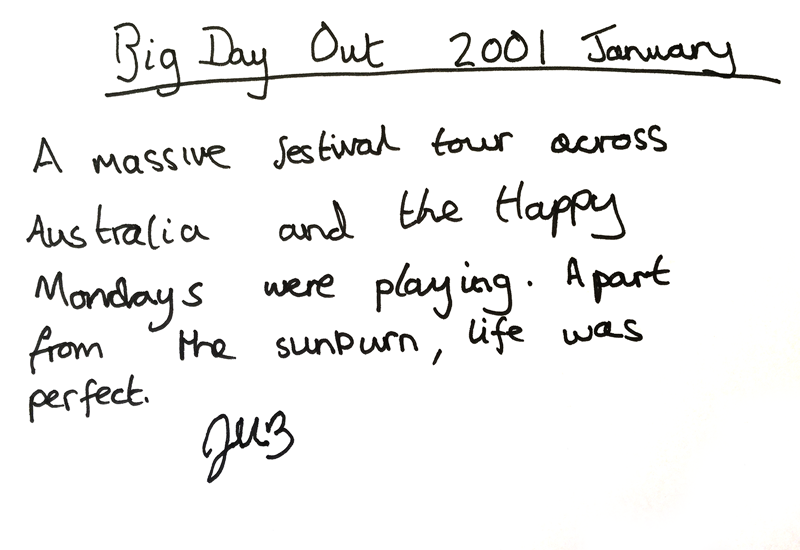 Big Day Out 2001 January
A massive festival tour across
Australia and the Happy
Mondays were playing. Apart
from the sunburn, life was
perfect.